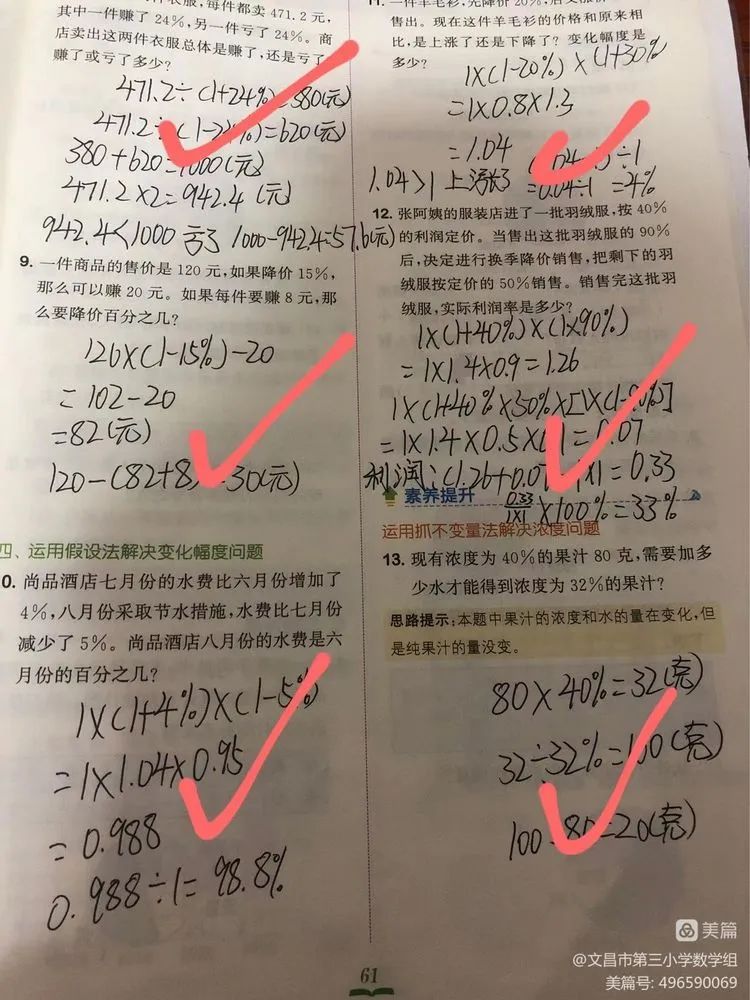 件衣服,每件都卖 471.2 元,
其中一件赚了 24%,另一件亏了 24%。商
店卖出这两件衣服总体是赚了,还是亏了?
赚了或亏了多少?
471.2÷(1+24%)=380(元)
471.2÷(1-24%)=620(元)
380+620=1000(元)
471.2×2=942.4(元)
942.4<1000 亏了 1000-942.4=57.6(元)
9. 一件商品的售价是 120 元,如果降价 15%,
那么可以赚 20 元。如果每件要赚 8 元,那
么要降价百分之几?
120×(1-15%)-20
=102-20
=82(元)
120-(82+8)=30(元)
四、运用假设法解决变化幅度问题
0. 尚品酒店七月份的水费比六月份增加了
4%,八月份采取节水措施,水费比七月份
减少了 5%。尚品酒店八月份的水费是六
月份的百分之几?
1×(1+4%)×(1-5%)
=1×1.04×0.95
=0.988
0.988÷1=98.8%
一件羊毛衫,先降价 20%,后又涨价
售出。现在这件羊毛衫的价格和原来相
比,是上涨了还是下降了?变化幅度是
多少?
1×(1-20%)×(1+30%
=1×0.8×1.3
=1.04
÷1
1.04>1 上涨了 =0.04÷1 =4%
12. 张阿姨的服装店进了一批羽绒服,按 40%
的利润定价。当售出这批羽绒服的 90%
后,决定进行换季降价销售,把剩下的羽
绒服按定价的 50%销售。销售完这批羽
绒服,实际利润率是多少?
1×(1+40%)×(1×90%)
=1×1.4×0.9=1.26
1×(1+40%×50%×[1×(1-90%)]
=1×1.4×0.5×0.1=0.07
利润:(1.26+0.07 1×1=0.33
素养提升
0.33/1×1 ×100%=33%
运用抓不变量法解决浓度问题
13. 现有浓度为 40%的果汁 80 克,需要加多
少水才能得到浓度为 32%的果汁?
思路提示:本题中果汁的浓度和水的量在变化,但
是纯果汁的量没变。
80×40%=32(克)
32÷32%=100(克)
100-80=20(克)
61
美篇
@文昌市第三小学数学组
美篇号: 496590069